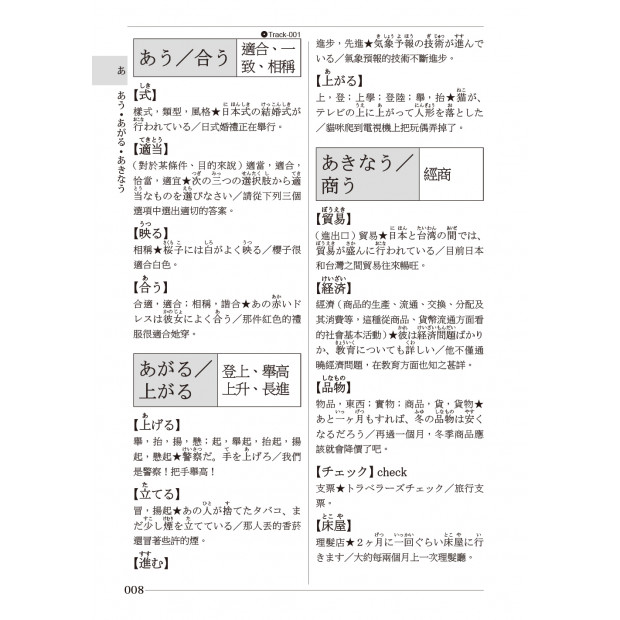 Track-001
あ
あう・あがる・あきなう
あう／合う
適合、一
致、相稱
【式】
樣式，類型，風格★日本式の結婚式が
行われている／日式婚禮正在舉行。
【適当】
（對於某條件、目的來說）適當，適合，
恰當，適宜★次の三つの選択肢から適
当なものを選びなさい／請從下列三個
選項中選出適切的答案。
【映る】
相稱★桜子には白がよく映る／櫻子很
適合白色。
【合う】
合適，適合；相稱，諧合★あの赤いド
レスは彼女によく合う／那件紅色的禮
服很適合她穿。
あがる／
上がる
登上、舉高
上升、長進
【上げる】
舉，抬，揚，懸；起，舉起，抬起，揚
起，懸起★警察だ。手を上げろ／我們
是警察！把手舉高！
【立てる】
冒，揚起★あの人が捨てたタバコ、ま
だ少し煙を立てている／那人丟的香菸
還冒著些許的煙。
【進む】
進步，先進★気象予報の技術が進んで
いる／氣象預報的技術不斷進步。
【上がる】
上，登；上學；登陸；舉，抬★猫が、
テレビの上に上がって人形を落とした
／貓咪爬到電視機上把玩偶弄掉了。
あきなう／
商う
經商
【貿易】
（進出口）貿易★日本と台湾の間では、
貿易が盛んに行われている／目前日本
和台灣之間貿易往來暢旺。
【経済】
經濟（商品的生產、流通、交換、分配及
其消費等，這種從商品、貨幣流通方面看
的社會基本活動）★彼は経済問題ばかり
か、教育についても詳しい／他不僅通
曉經濟問題，在教育方面也知之甚詳。
【品物】
物品，東西；實物；商品，貨，貨物★
あと一ヶ月もすれば、冬の品物は安く
なるだろう／再過一個月，冬季商品應
該就會降價了吧。
【チェック】check
支票★トラベラーズチェック／旅行支
票。
【床屋】
理髮店★２ヶ月に一回ぐらい床屋に行
きます／大約每兩個月上一次理髮廳。
008